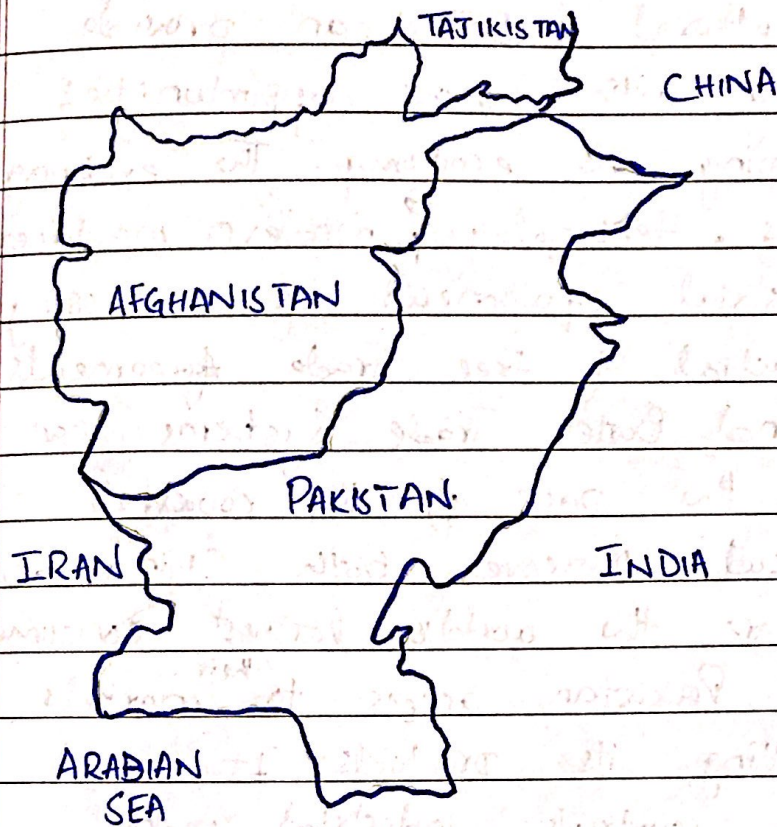 TAJIKISTAN
CHINA
AFGHANISTAN
PAKISTAN.
IRAN
INDIA
ARABIAN
SEA